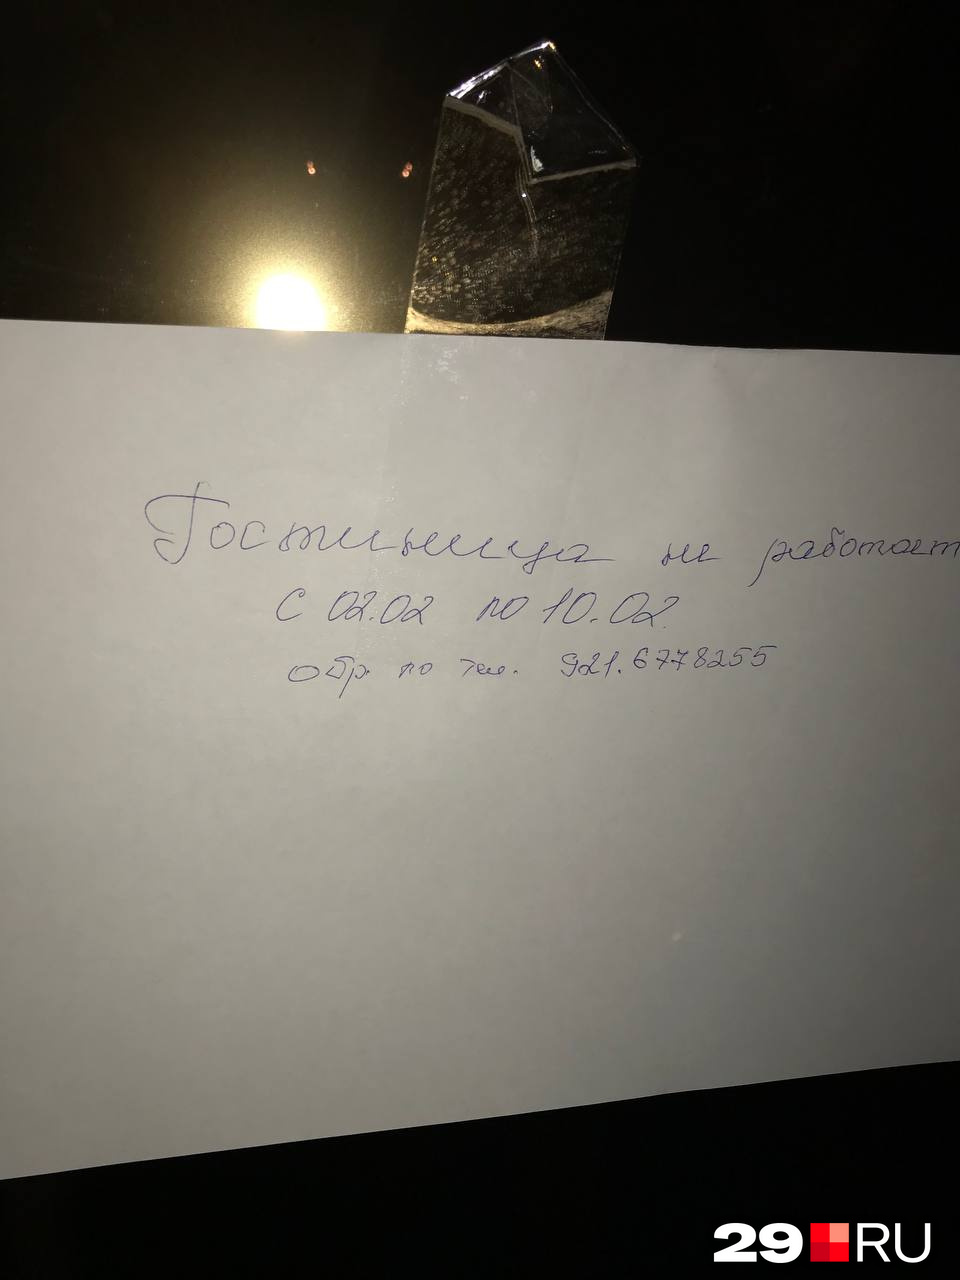 Гостиница не работает
с 02.02 по 10.02.
обр. по тел. 921.6778255
29 RU